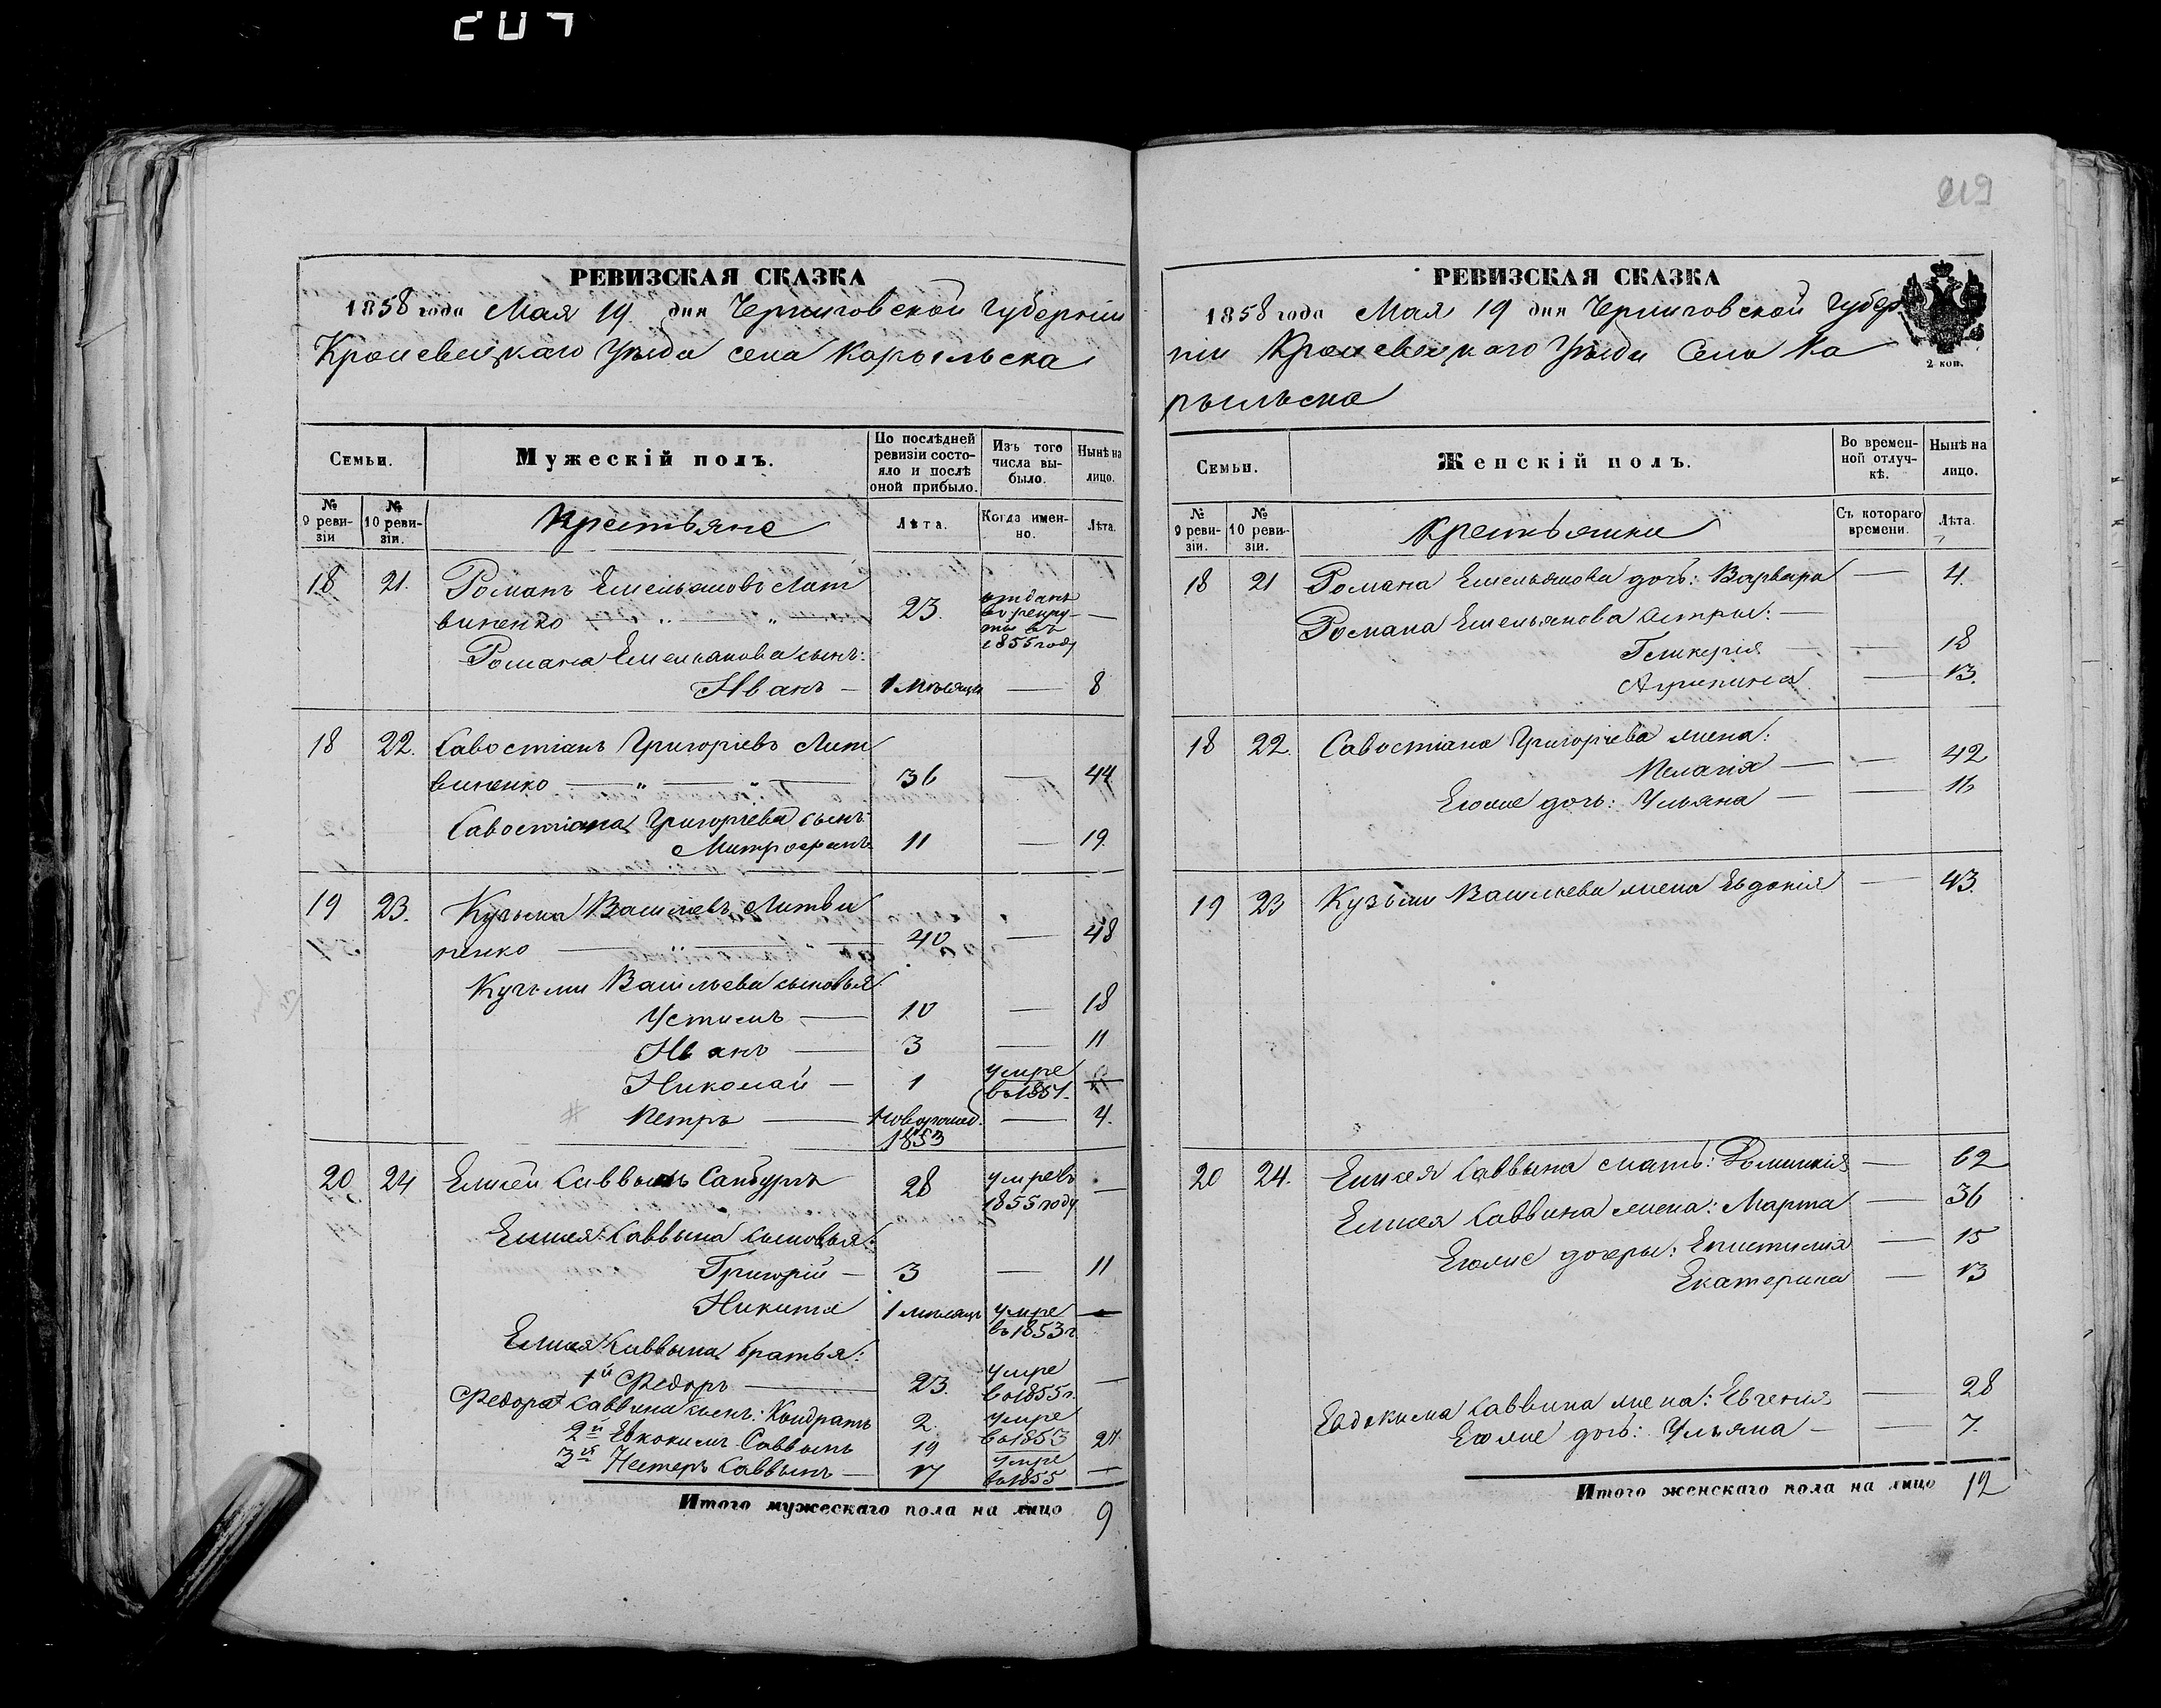 207
РЕВИЗСКАЯ СКАЗКА
1858 года Мая 19 дня Черниговской Губерніи
Кролевецкаго Уѣзда села Карыльска
Семьи.
Мужескій полъ.
По послѣдней ревизіи состояло и послѣ оной прибыло.
Изъ того числа выбыло.
Нынѣ на лицо.
№ 9 ревизіи
№ 10 ревизіи.
Крестьяне
Лѣта.
Когда именно.
Лѣта.
18 21. Романъ Емельяновъ Лит
виненко 23. отданъ въ рекруты въ 1855 году —
Романа Емельянова сынъ:
Иванъ — 1 мѣсяцъ — 8
18 22. Савостіанъ Григоріевъ Лит
виненко 36 — 44
Савостіана Григоріева сынъ
Митрофанъ 11 — 19.
19 23. Кузьма Васильевъ Литви
ненко 40 — 48
Кузьмы Васильева сыновья
Устимъ — 10 — 18
Иванъ — 3 — 11
Николай — 1 умре въ 1851. —
Петръ — Новорожд. 1853 — 4.
20 24 Елисей Саввинъ Санбуръ 28 умре въ 1855 году —
Елисея Саввина сыновья:
Григорій — 3 — 11
Никита 1 мѣсяцъ умре въ 1853 г —
Елисея Саввина братья:
1й Федоръ — 23. умре въ 1855 г. —
Федора Саввина сынъ: Кондратъ 2 умре въ 1853
2й Евкокимъ Саввинъ 19 27
3й Нестеръ Саввинъ — 17 умре въ 1855 —
Итого мужескаго пола на лицо 9
219
РЕВИЗСКАЯ СКАЗКА
1858 года Мая 19 дня Черниговской Губер
ніи Кролевецкаго Уѣзда Села Ка
рыльска
2 коп.
Семьи.
Женскій полъ.
Во временной отлучкѣ.
Нынѣ на лицо.
№ 9 ревизіи.
№ 10 ревизіи.
Крестьянки
Съ котораго времени.
Лѣта.
18 21 Романа Емельянова дочь: Варвара — 4.
Романа Емельянова сестры: —
Гликерія — — 18
Агрипина — 13.
18 22. Савостіана Григоріева жена:
Пелагія — — 42
Егоже дочь: Ульяна — — 16
19 23 Кузьмы Васильева жена Евдокія — 43.
20 24. Елисея Саввина мать: Домникія — 62
Елисея Саввина жена: Марта — 36
Егоже дочеры: Епистимія — 15
Екатерина — 13
Евдокима Саввина жена: Евгенія — 28
Егоже дочь: Ульяна — — 7.
Итого женскаго пола на лицо 12